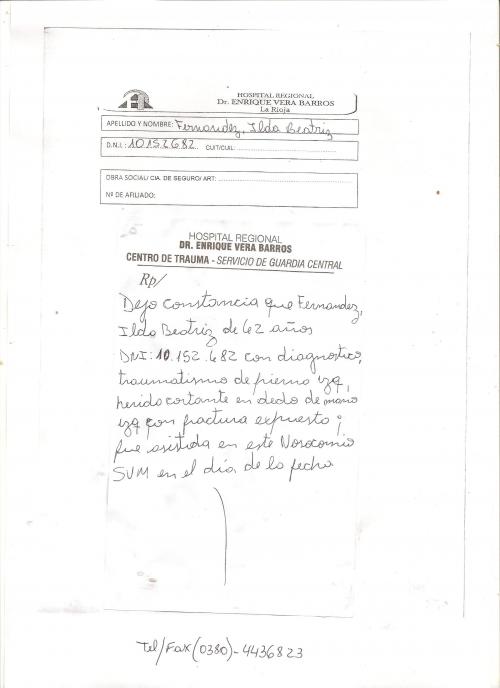 HOSPITAL REGIONAL
Dr. ENRIQUE VERA BARROS
La Rioja
APELLIDO Y NOMBRE: Fernandez, Ilda Beatriz
D.N.I.: 10152682 CUIT/CUIL:
OBRA SOCIAL/ CIA. DE SEGURO/ ART:
Nº DE AFILIADO:
HOSPITAL REGIONAL
DR. ENRIQUE VERA BARROS
CENTRO DE TRAUMA - SERVICIO DE GUARDIA CENTRAL
Rp/
Dejo constancia que Fernandez,
Ilda Beatriz de 62 años
DNI: 10.152.682 con diagnostico,
traumatismo de pierna izq,
herida cortante en dedo de mano
izq con fractura expuesta;
fue asistida en este Nosocomio
SVM en el día de la fecha
Tel/Fax (0380)-4436823